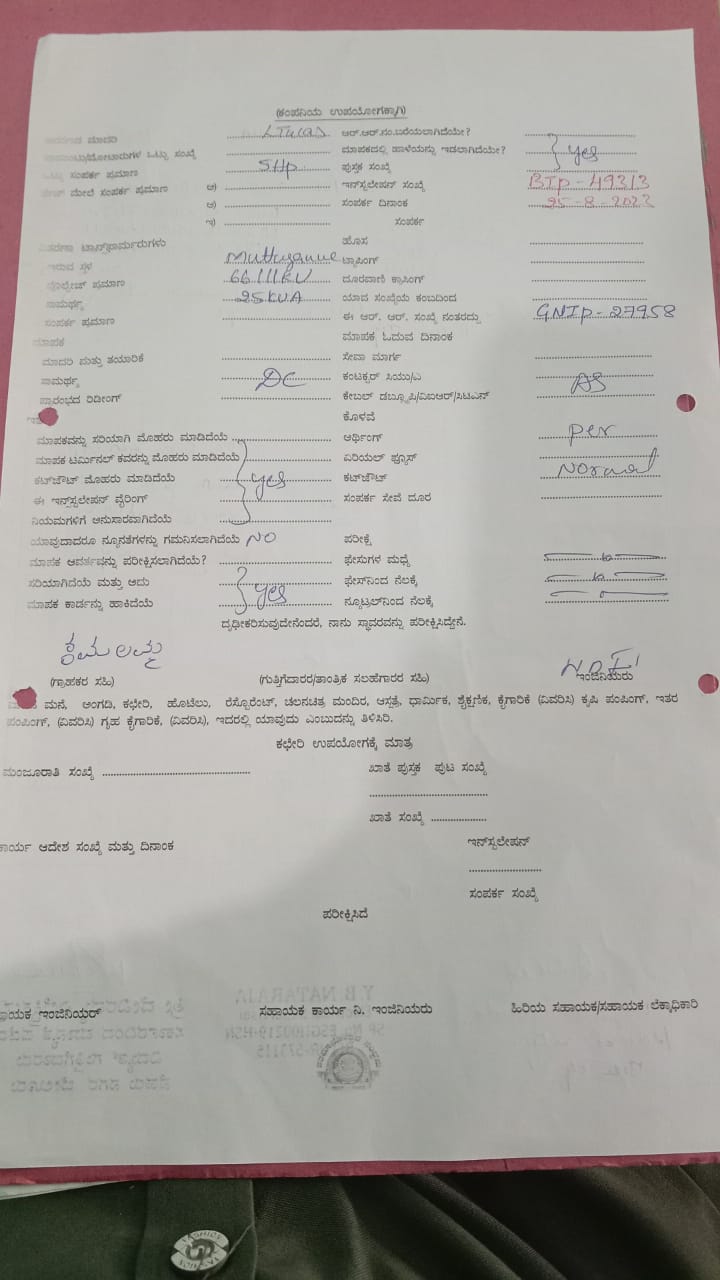 (ಕಂಪನಿಯ ಉಪಯೋಗಕ್ಕಾಗಿ)
ಮಾದರಿ ಆರ್.ಆರ್.ನಂ.ಬರೆಯಲಾಗಿದೆಯೇ?
ಒಟ್ಟು ಸಂಖ್ಯೆ ಮಾಪಕದಲ್ಲಿ ಹಾಳೆಯನ್ನು ಇಡಲಾಗಿದೆಯೇ? } yes
ಸಂಪರ್ಕ ಪ್ರಮಾಣ 5Hp ಪುಸ್ತಕ ಸಂಖ್ಯೆ
ಮೇಲೆ ಸಂಪರ್ಕ ಪ್ರಮಾಣ ಅ) ಇನ್‌ಸ್ಟಲೇಷನ್ ಸಂಖ್ಯೆ BIP-49313
ಆ) ಸಂಪರ್ಕ ದಿನಾಂಕ 25-8-2022
ಇ) ಸಂಪರ್ಕ
ಟ್ರಾನ್ಸ್‌ಫಾರ್ಮರುಗಳು ಹೊಸ
ಇರುವ ಸ್ಥಳ ಟ್ಯಾಪಿಂಗ್
ವೋಲ್ಟೇಜ್ ಪ್ರಮಾಣ 66/11KV ದೂರವಾಣಿ ಕ್ರಾಸಿಂಗ್
ಸಾಮರ್ಥ್ಯ 25KVA ಯಾವ ಸಂಖ್ಯೆಯ ಕಂಬದಿಂದ
ಸಂಪರ್ಕ ಪ್ರಮಾಣ ಈ ಆರ್. ಆರ್. ಸಂಖ್ಯೆ ನಂತರದ್ದು GNIP-27958
ಮಾಪಕ ಮಾಪಕ ಓದುವ ದಿನಾಂಕ
ಮಾದರಿ ಮತ್ತು ತಯಾರಿಕೆ ಸೇವಾ ಮಾರ್ಗ
ಸಾಮರ್ಥ್ಯ DC ಕಂಟಕ್ಟರ್ ಸಿಯು/ಎ AS
ಪ್ರಾರಂಭದ ರಿಡೀಂಗ್ ಕೇಬಲ್ ಡಬ್ಲ್ಯೂಪಿ/ವಿಐಆರ್/ಸಿಟಿಎಸ್
ಕೊಳವೆ
ಮಾಪಕವನ್ನು ಸರಿಯಾಗಿ ಮೊಹರು ಮಾಡಿದೆಯೆ ಆರ್ಥಿಂಗ್ per
ಮಾಪಕ ಟರ್ಮಿನಲ್ ಕವರನ್ನು ಮೊಹರು ಮಾಡಿದೆಯೆ ಏರಿಯಲ್ ಫ್ಯೂಸ್
ಕಟ್‌ಔಟ್ ಮೊಹರು ಮಾಡಿದೆಯೆ } yes ಕಟ್‌ಔಟ್ Normal
ಈ ಇನ್ಸ್‌ಸ್ಟಲೇಷನ್ ವೈರಿಂಗ್ ಸಂಪರ್ಕ ಸೇವೆ ದೂರ
ನಿಯಮಗಳಿಗೆ ಅನುಸಾರವಾಗಿದೆಯೆ
ಯಾವುದಾದರೂ ನ್ಯೂನತೆಗಳನ್ನು ಗಮನಿಸಲಾಗಿದೆಯೆ NO ಪರೀಕ್ಷೆ
ಮಾಪಕ ಆವರ್ತವನ್ನು ಪರೀಕ್ಷಿಸಲಾಗಿದೆಯೆ? ಫೇಸುಗಳ ಮಧ್ಯೆ
ಸರಿಯಾಗಿದೆಯೆ ಮತ್ತು ಅದು } yes ಫೇಸ್‌ನಿಂದ ನೆಲಕ್ಕೆ
ಮಾಪಕ ಕಾರ್ಡನ್ನು ಹಾಕಿದೆಯೆ ನ್ಯೂಟ್ರಲ್‌ನಿಂದ ನೆಲಕ್ಕೆ
ದೃಢೀಕರಿಸುವುದೇನೆಂದರೆ, ನಾನು ಸ್ಥಾವರವನ್ನು ಪರೀಕ್ಷಿಸಿದ್ದೇನೆ.
ಕಮಲಮ್ಮ
(ಗ್ರಾಹಕರ ಸಹಿ) (ಗುತ್ತಿಗೆದಾರರ/ತಾಂತ್ರಿಕ ಸಲಹೆಗಾರರ ಸಹಿ) ಇಂಜಿನಿಯರು
ಮನೆ, ಅಂಗಡಿ, ಕಛೇರಿ, ಹೊಟೆಲು, ರೆಸ್ಟೊರೆಂಟ್, ಚಲನಚಿತ್ರ ಮಂದಿರ, ಆಸ್ಪತ್ರೆ, ಧಾರ್ಮಿಕ, ಶೈಕ್ಷಣಿಕ, ಕೈಗಾರಿಕೆ (ವಿವರಿಸಿ) ಕೃಷಿ ಪಂಪಿಂಗ್, ಇತರ
ಪಂಪಿಂಗ್, (ವಿವರಿಸಿ) ಗೃಹ ಕೈಗಾರಿಕೆ, (ವಿವರಿಸಿ), ಇದರಲ್ಲಿ ಯಾವುದು ಎಂಬುದನ್ನು ತಿಳಿಸಿರಿ.
ಕಛೇರಿ ಉಪಯೋಗಕ್ಕೆ ಮಾತ್ರ
ಮಂಜೂರಾತಿ ಸಂಖ್ಯೆ ಖಾತೆ ಪುಸ್ತಕ ಪುಟ ಸಂಖ್ಯೆ
ಖಾತೆ ಸಂಖ್ಯೆ
ಕಾರ್ಯ ಆದೇಶ ಸಂಖ್ಯೆ ಮತ್ತು ದಿನಾಂಕ ಇನ್‌ಸ್ಟಲೇಷನ್
ಸಂಪರ್ಕ ಸಂಖ್ಯೆ
ಪರೀಕ್ಷಿಸಿದೆ
ಾಯಕ ಇಂಜಿನಿಯರ್ ಸಹಾಯಕ ಕಾರ್ಯ ನಿ. ಇಂಜಿನಿಯರು ಹಿರಿಯ ಸಹಾಯಕ/ಸಹಾಯಕ ಲೆಕ್ಕಾಧಿಕಾರಿ